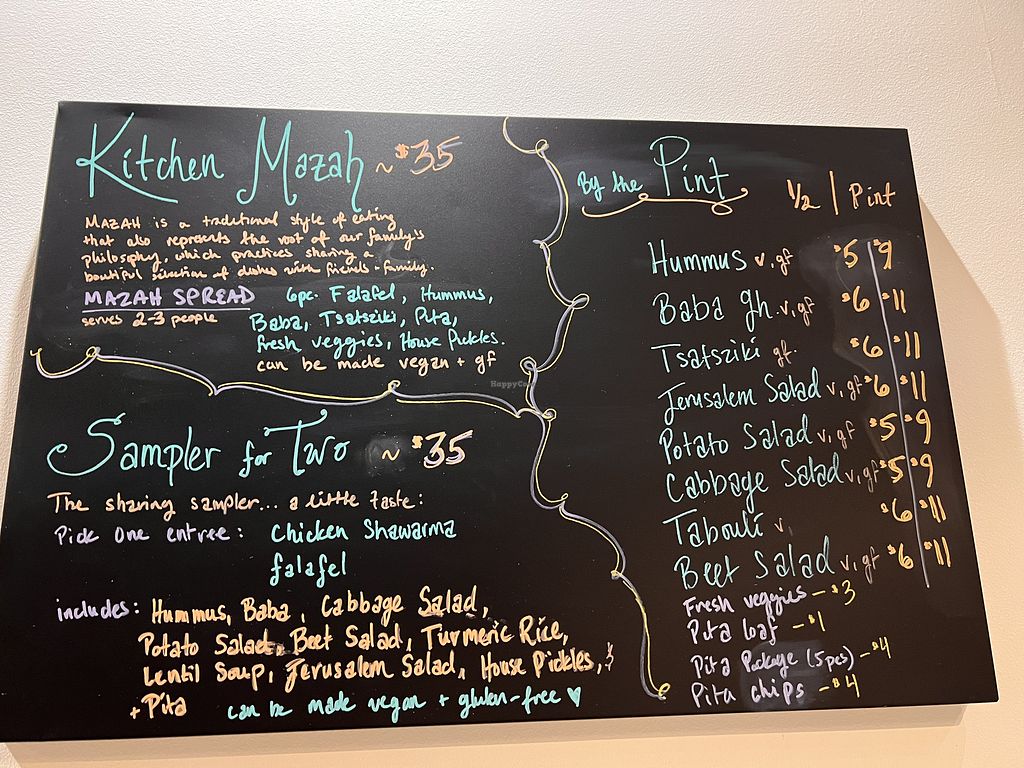 Kitchen Mazah ~ $35
MAZAH is a traditional style of eating
that also represents the root of our family's
philosophy, which practices sharing a
beautiful selection of dishes with friends + family.
MAZAH SPREAD
serves 2-3 people
6pc. Falafel, Hummus,
Baba, Tsatsziki, Pita,
fresh veggies, House Pickles.
can be made vegan + gf
Sampler for Two ~ $35
The sharing sampler... a little taste:
Pick one entree: Chicken Shawarma
falafel
includes: Hummus, Baba, Cabbage Salad,
Potato Salad, Beet Salad, Turmeric Rice,
Lentil Soup, Jerusalem Salad, House Pickles, &
+ Pita can be made vegan + gluten-free ♥
By the Pint
1/2 | Pint
Hummus v, gf $5 $9
Baba gh. v, gf $6 $11
Tsatsziki gf $6 $11
Jerusalem Salad v, gf $6 $11
Potato Salad v, gf $5 $9
Cabbage Salad v, gf $5 $9
Tabouli v, $6 $11
Beet Salad v, gf $6 $11
Fresh veggies - $3
Pita loaf - $1
Pita Package (5pcs) - $4
Pita chips - $4
HappyCow